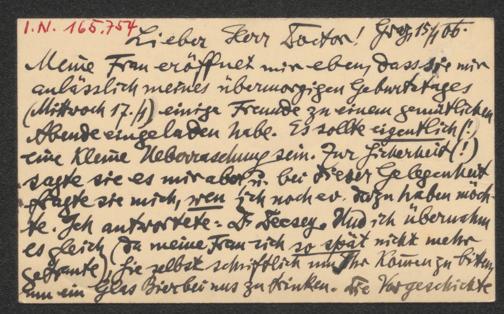 I.N. 165.754
Lieber Herr Doctor! Graz, 15/I 06.
Meine Frau eröffnet mir eben, dass sie mir
anlässlich meines übermorgigen Geburtstages
(Mittwoch 17./I) einige Freunde zu einem gemütlichen
Abende eingeladen habe. Es sollte eigentlich (!)
eine kleine Ueberraschung sein. Zur Sicherheit (!)
sagte sie es mir aber u. bei dieser Gelegenheit
fragte sie mich, wen ich noch ev. dazu haben möch-
te. Ich antwortete: Dr Decsey. Und ich übernahm
es gleich (da meine Frau sich so spät nicht mehr
getraute), Sie selbst schriftlich um Ihr Kommen zu bitten
um ein Glas Bier bei uns zu trinken. Die Vorgeschichte